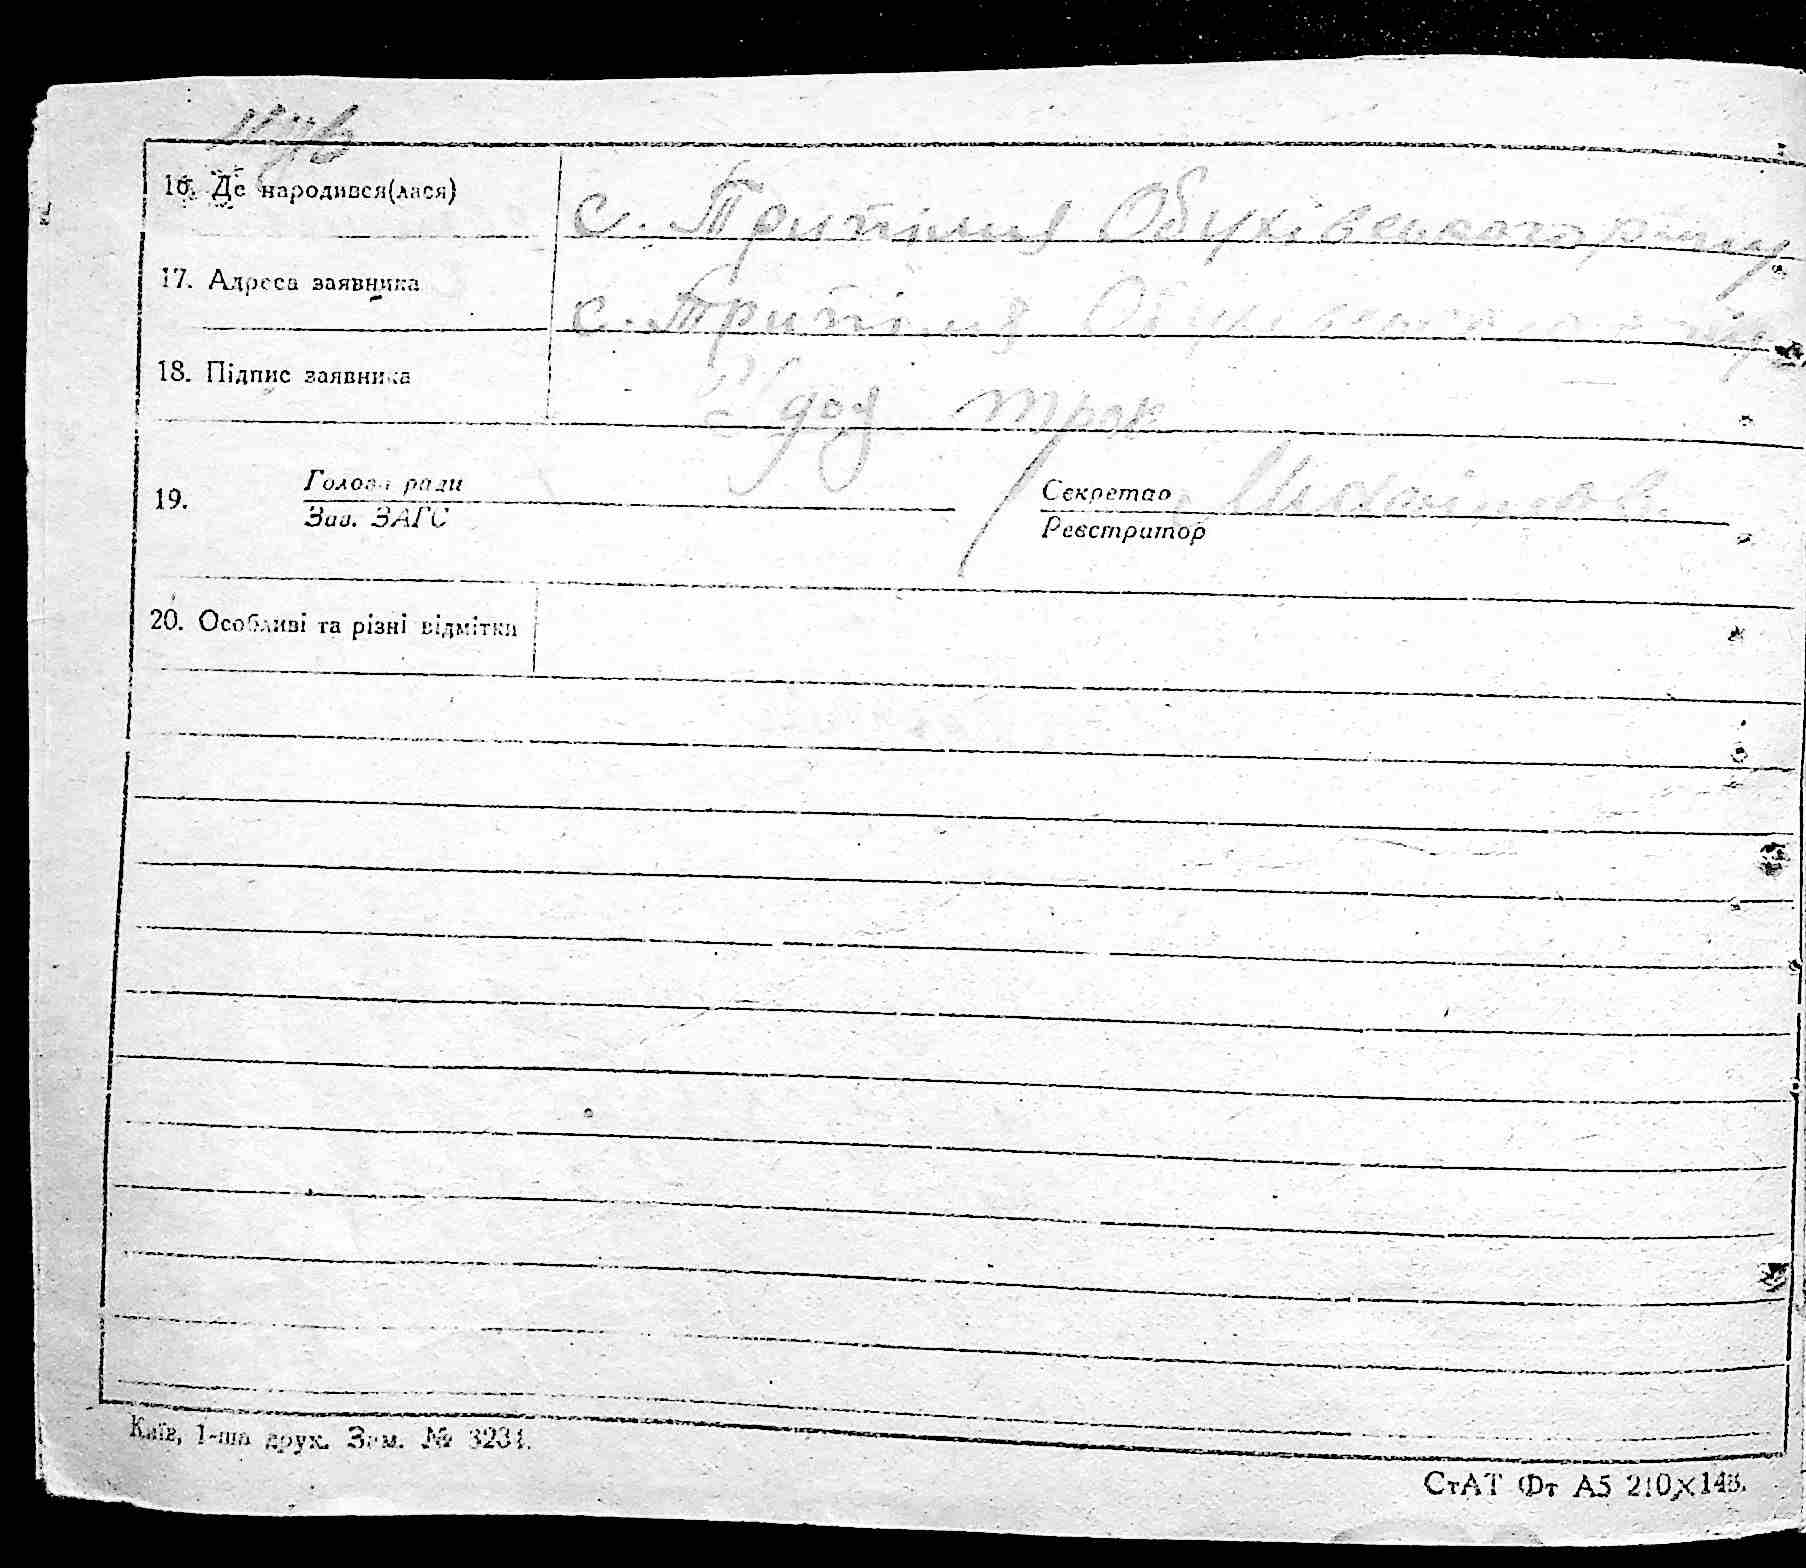 16. Де народився(лася) с. Трипілля Обухівського р-ну
17. Адреса заявника с. Трипілля Обухівського
18. Підпис заявника
19. Голова ради Секретар
Зав. ЗАГС Реєстратор
20. Особливі та різні відмітки
Київ, 1-ша друк. Зам. № 3231.
СтАТ Фт А5 210×148.